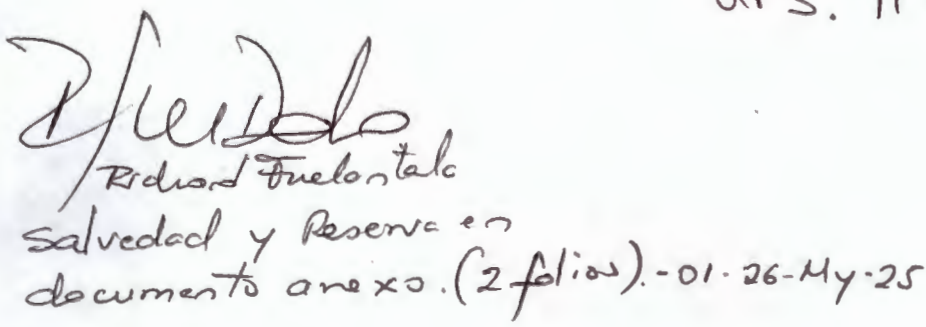 Richard Fuelantala
Salvedad y Reserva en
documento anexo. (2 folios).-01-26-My-25